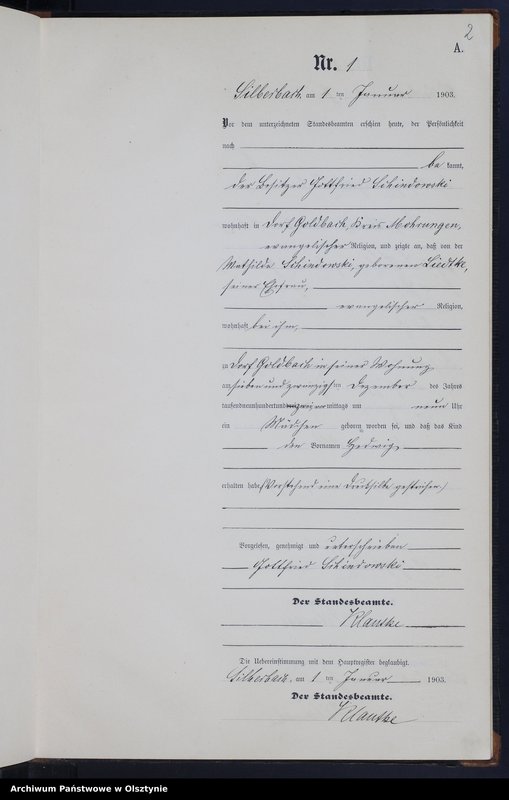 2
A.
Nr. 1
Silberbach, am 1 ten Januar 1903.
Vor dem unterzeichneten Standesbeamten erschien heute, der Persönlichkeit
nach
be kannt,
der Besitzer Gottfried Schindowski
wohnhaft in Dorf Goldbach, Kreis Mohrungen,
evangelischer Religion, und zeigte an, daß von der
Mathilde Schindowski, geborenen Liedtke,
seiner Ehefrau,
evangelischer Religion,
wohnhaft bei ihm,
zu Dorf Goldbach in seiner Wohnung
am sieben und zwanzigsten Dezember des Jahres
tausendneunhundert und zwei vormittags um neun Uhr
ein Mädchen geboren worden sei, und daß das Kind
den Vornamen Hedwig
erhalten habe. (Vorstehend eine Drucksilbe gestrichen.)
Vorgelesen, genehmigt und unterschrieben
Gottfried Schindowski
Der Standesbeamte.
Klauske
Die Uebereinstimmung mit dem Hauptregister beglaubigt.
Silberbach, am 1 ten Januar 1903.
Der Standesbeamte.
Klauske
Archiwum Państwowe w Olsztynie